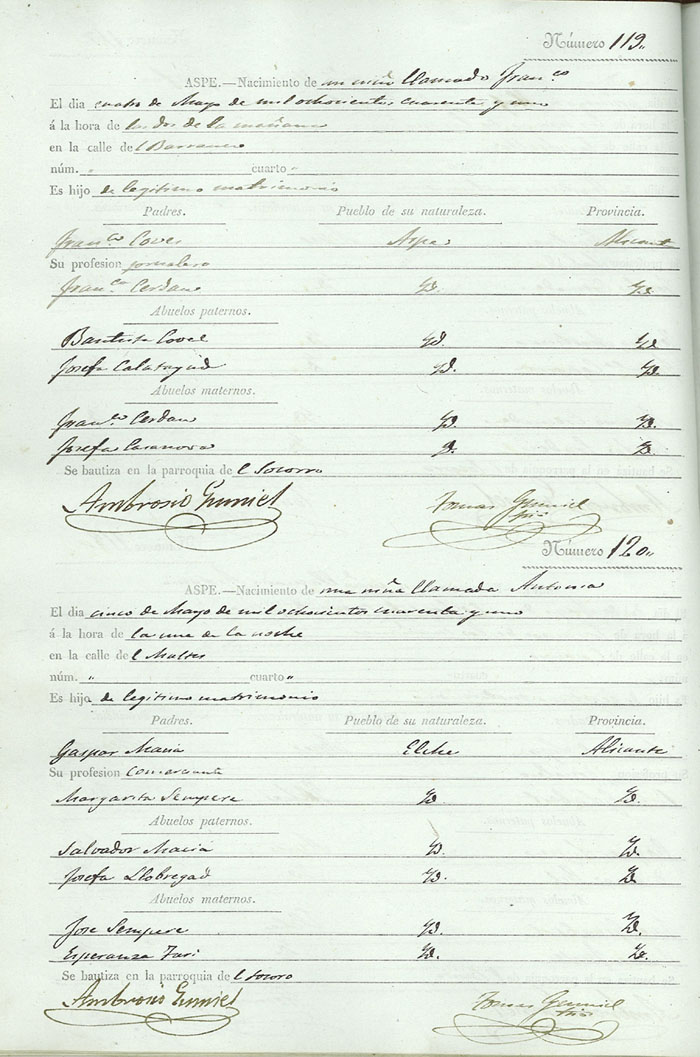 Número 119.
ASPE.—Nacimiento de un niño llamado Franco
El dia cuatro de Mayo de mil ochocientos cuarenta y uno
á la hora de las dos de la mañana
en la calle del Barranco
núm. " cuarto "
Es hijo de legitimo matrimonio
Padres. Pueblo de su naturaleza. Provincia.
Franco Coves Aspe Alicante
Su profesion jornalero
Franca Cerdan Yd. Yd.
Abuelos paternos.
Bautista Coves Yd. Yd.
Josefa Calatayud Yd. Yd.
Abuelos maternos.
Franco Cerdan Yd. Yd.
Josefa Casanova Yd. Yd.
Se bautiza en la parroquia del Socorro
Ambrosio Gumiel Tomas Gumiel
Número 120.
ASPE.—Nacimiento de una niña llamada Antonia
El dia cinco de Mayo de mil ochocientos cuarenta y uno
á la hora de la una de la noche
en la calle del
núm. " cuarto "
Es hijo de legitimo matrimonio
Padres. Pueblo de su naturaleza. Provincia.
Gaspar Macia Elche Alicante
Su profesion comerciante
Margarita Sempere Yd. Yd.
Abuelos paternos.
Salvador Macia Yd. Yd.
Josefa Llobregad Yd. Yd.
Abuelos maternos.
Jose Sempere Yd. Yd.
Esperanza Yd. Yd.
Se bautiza en la parroquia del Socoro
Ambrosio Gumiel Tomas Gumiel